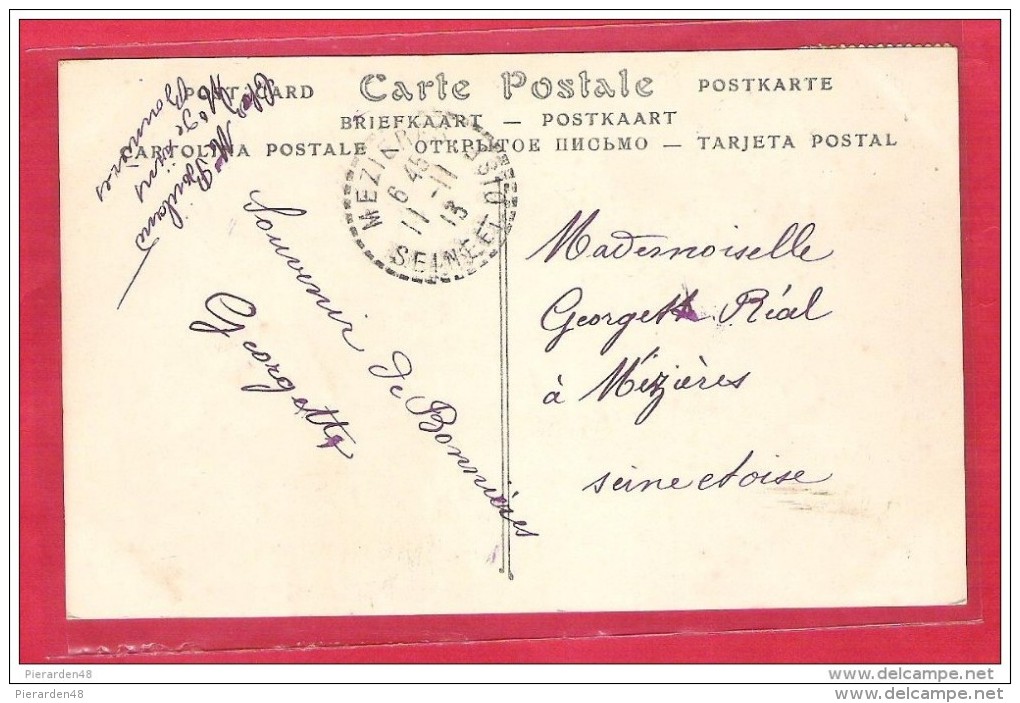 POST CARD Carte Postale POSTKARTE
BRIEFKAART — POSTKAART
CARTOLINA POSTALE — ОТКРЫТОЕ ПИСЬМО — TARJETA POSTAL
Chez Mr
Bonnières
MEZI
6 45
11 - 11
13
SEINE ET OISE
Souvenir de Bonnières
Georgette
Mademoiselle
Georgette Réal
à Mézières
seine et oise
Pierarden48
delcampe.net
Pierarden48
delcampe.net